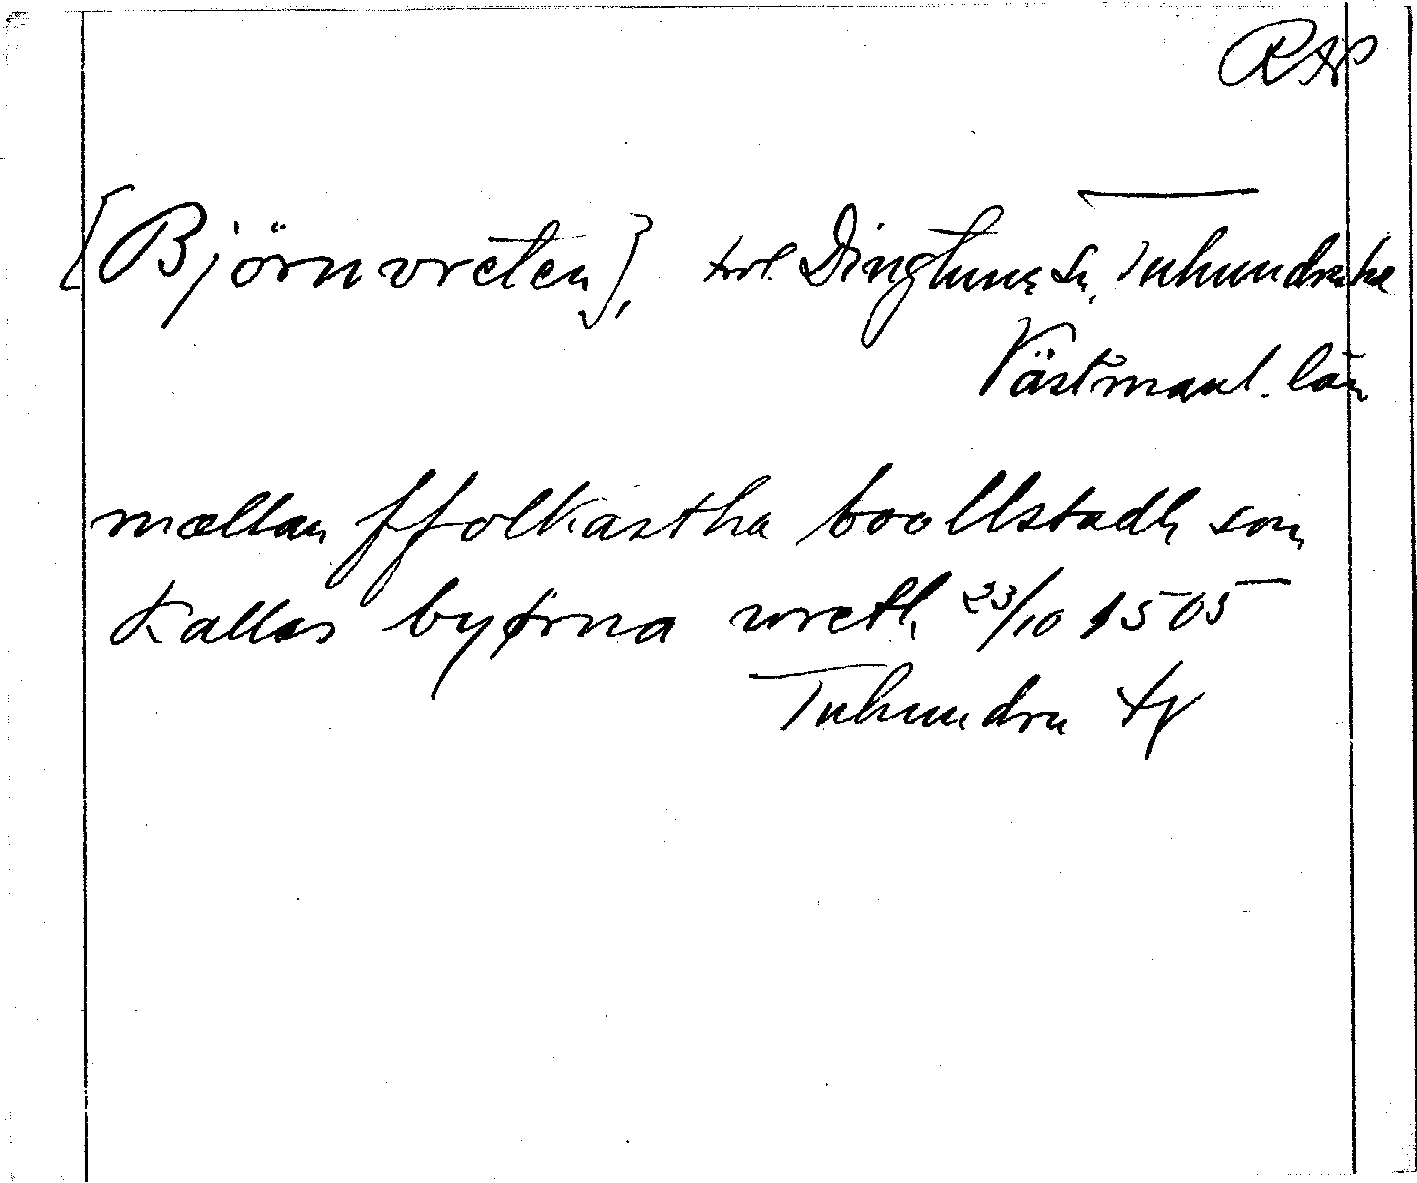 RAp
[Björnvreten], trol. Dingtuna sn, Tuhundra hd
Västmanl. län
mellan ffolkastha boollstadh som
kallas byørna wreth 23/10 1505
Tuhundra